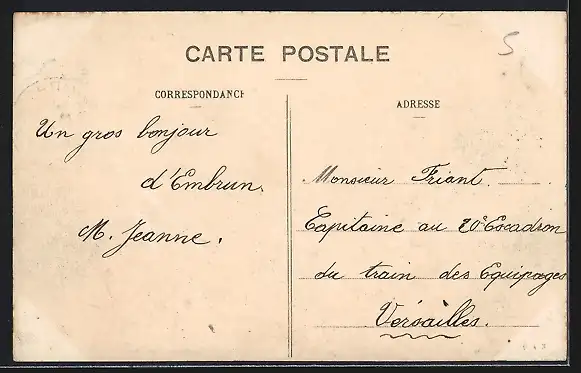 CARTE POSTALE
5
CORRESPONDANCE
ADRESSE
Un gros bonjour
d'Embrun.
M. Jeanne.
Monsieur Friant.
Capitaine au 20e Escadron
du train des Equipages
Versailles.